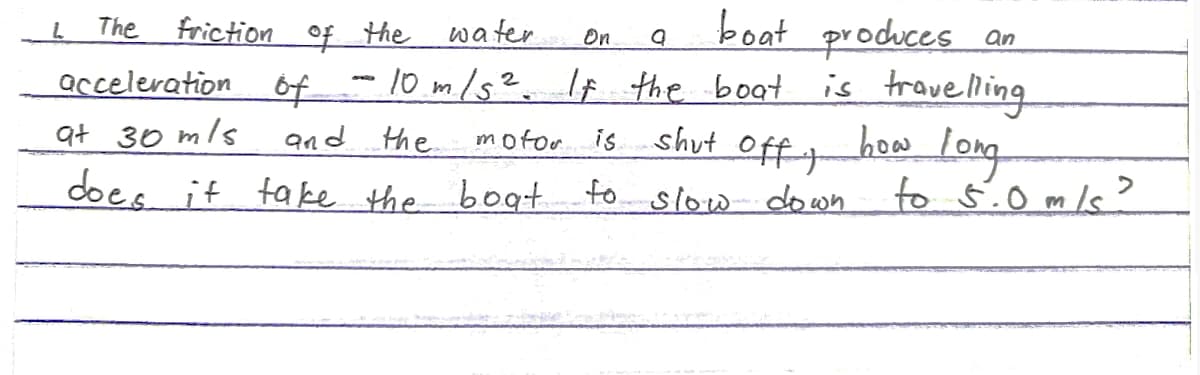 1. The friction of the water on a boat produces an
acceleration of - 10 m/s². If the boat is travelling
at 30 m/s and the motor is shut off, how long
does it take the boat to slow down to 5.0 m/s?